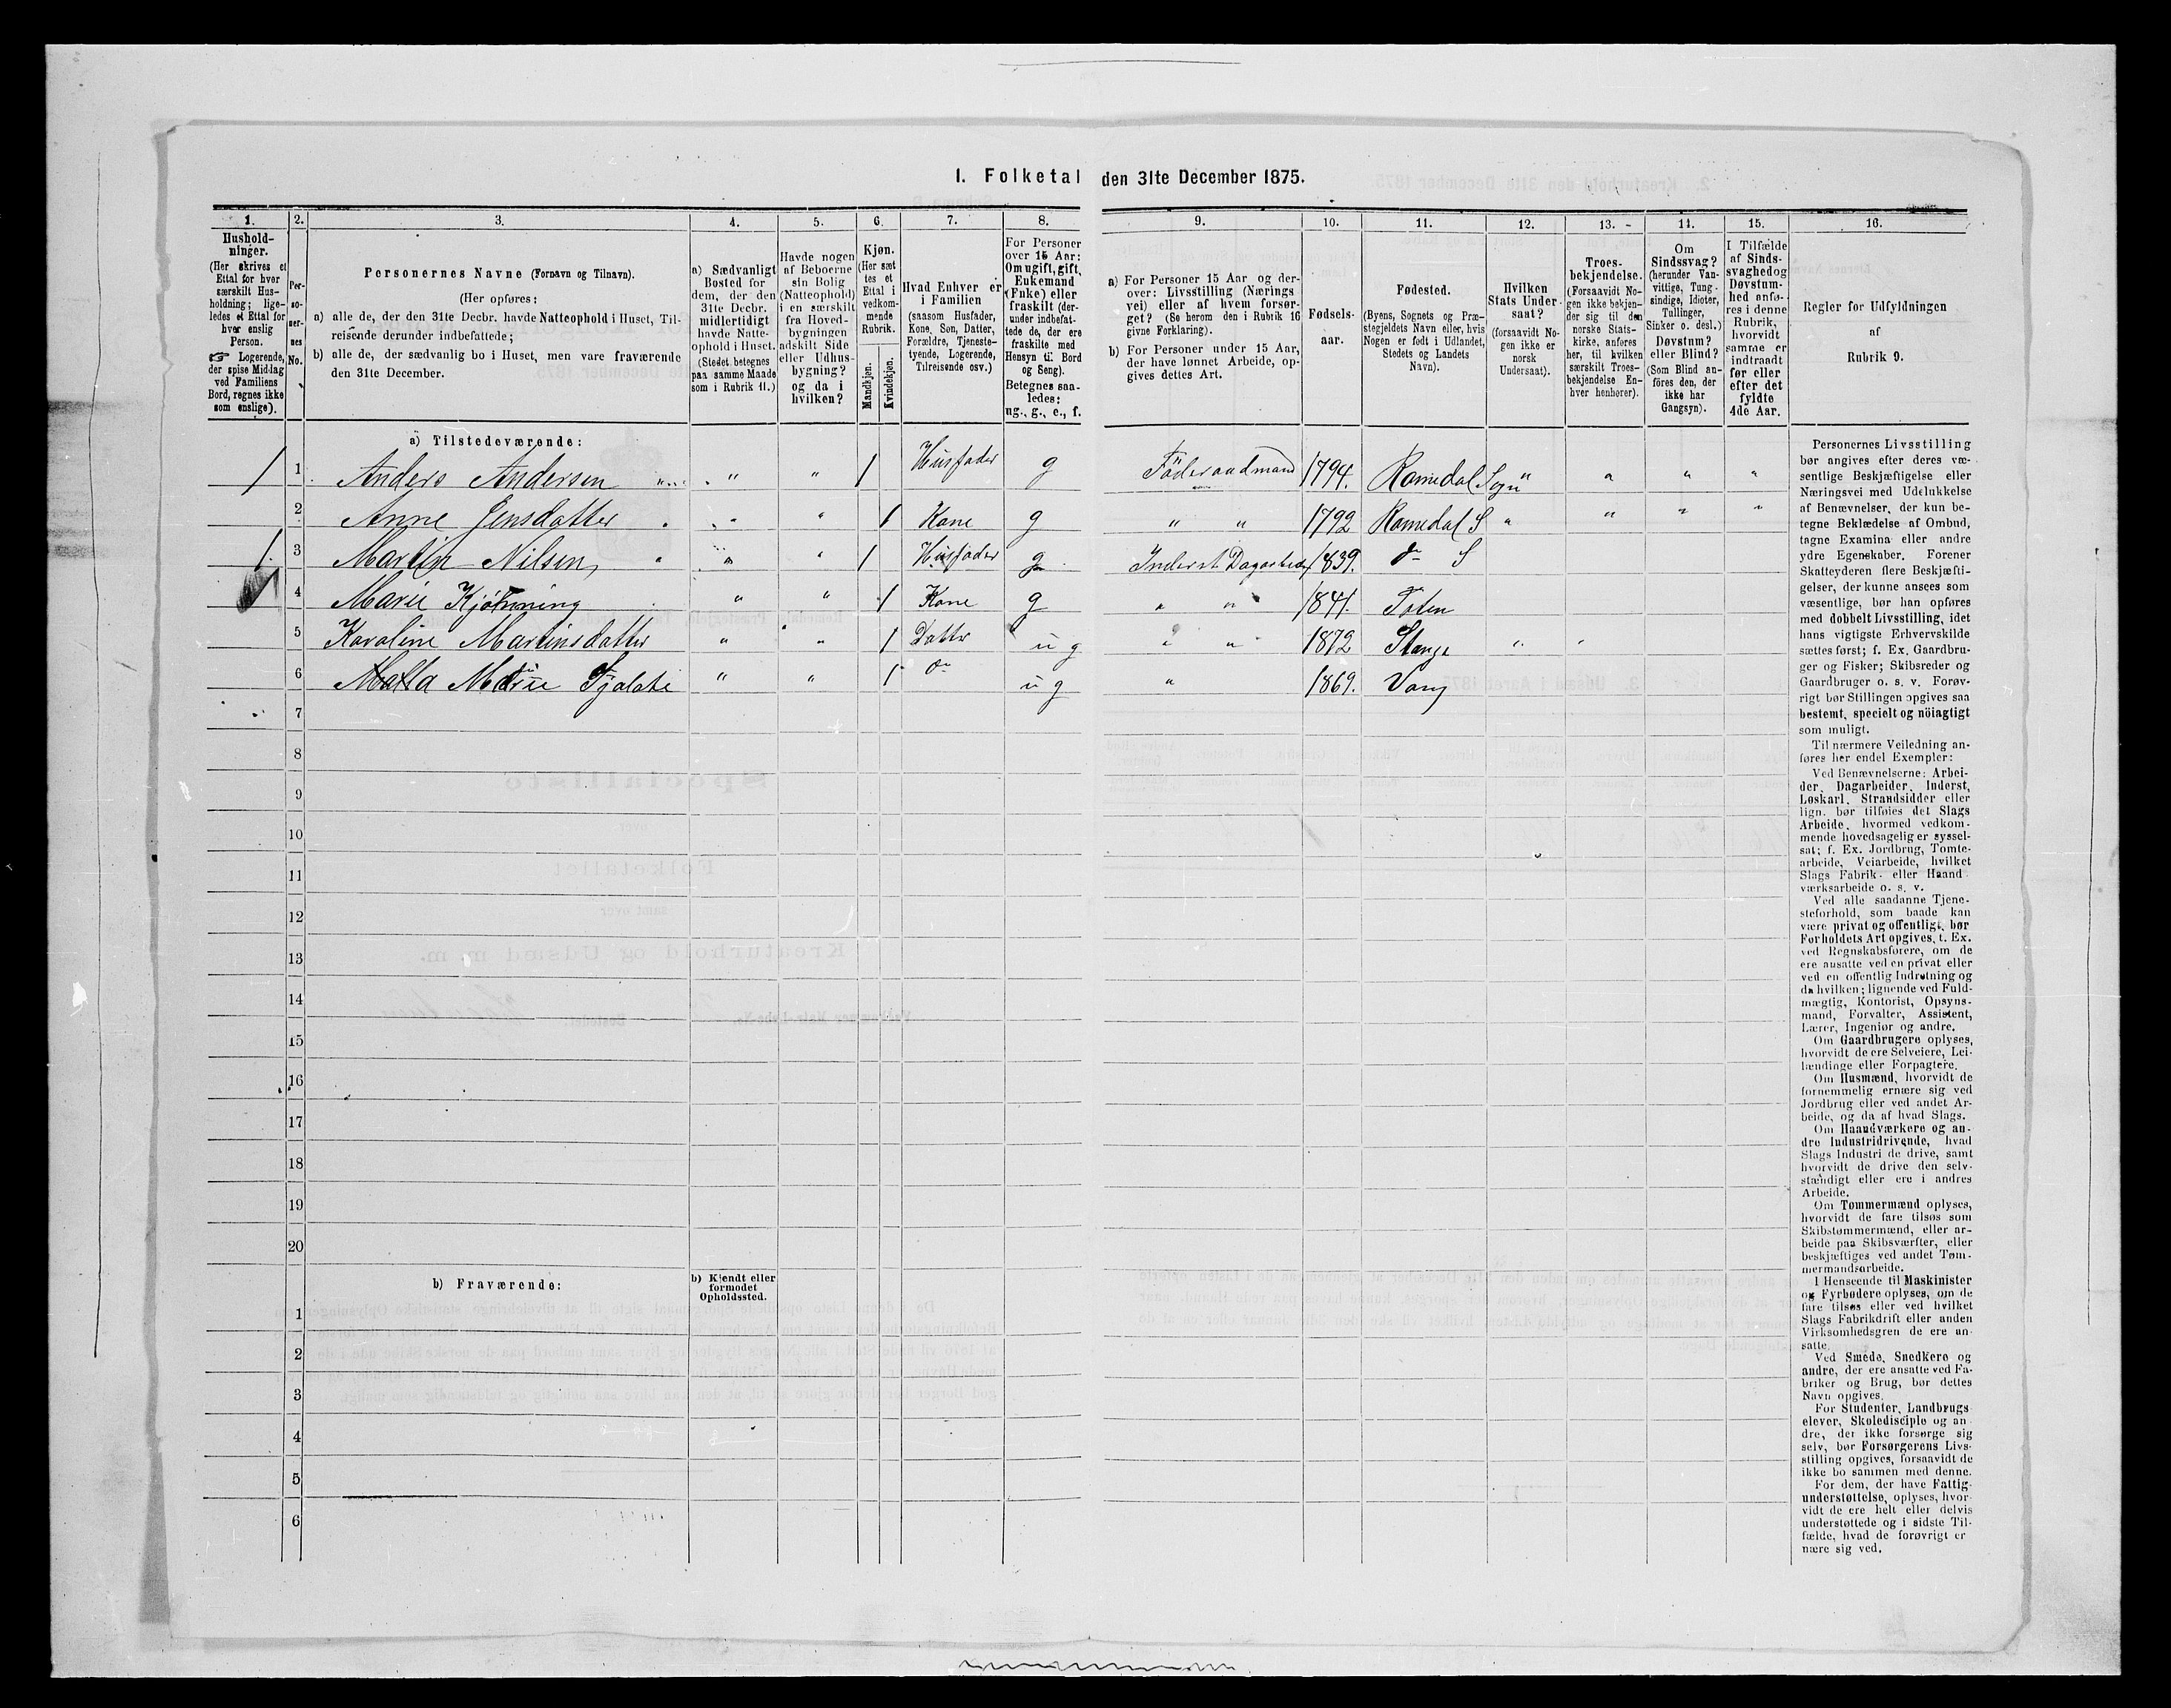 1. Folketal den 31te December 1875.
1.
Hushold-
ninger.
(Her skrives et
Ettal for hver
særskilt Hus-
holdning; lige-
ledes et Ettal for
hver enslig
Person.
☞ Logerende,
der spise Middag
ved Familiens
Bord, regnes ikke
som enslige).
2.
Per-
so-
ner-
nes
No.
3.
Personernes Navne (Fornavn og Tilnavn).
(Her opføres:
a) alle de, der den 31te Decbr. havde Natteophold i Huset, Til-
reisende derunder indbefattede;
b) alle de, der sædvanlig bo i Huset, men vare fraværende
den 31te December.
4.
a) Sædvanligt
Bosted for
dem, der den
31te Decbr.
midlertidigt
havde Natte-
ophold i Huset.
(Stedet betegnes
paa samme Maade
som i Rubrik 11.)
5.
Havde nogen
af Beboerne
sin Bolig
(Natteophold)
i en særskilt
fra Hoved-
bygningen
adskilt Side
eller Udhus-
bygning?
og da i
hvilken?
6.
Kjøn.
(Her sæt
tes et
Ettal i
vedkom-
mende
Rubrik.
Mandkjøn.
Kvindekjøn.
7.
Hvad Enhver er
i Familien
(saasom Husfader,
Kone, Søn, Datter,
Forældre, Tjeneste-
tyende, Logerende,
Tilreisende osv.)
8.
For Personer
over 15 Aar:
Om ugift, gift,
Enkemand
(Enke) eller
fraskilt (der-
under indbefat-
tede de, der ere
fraskilte med
Hensyn til Bord
og Seng).
Betegnes saa-
ledes:
ug., g., e., f.
9.
a) For Personer 15 Aar og der-
over: Livsstilling (Nærings
vei) eller af hvem forsør-
get? (Se herom den i Rubrik 16
givne Forklaring).
b) For Personer under 15 Aar,
der have lønnet Arbeide, op-
gives dettes Art.
10.
Fødsels-
aar.
11.
Fødested.
(Byens, Sognets og Præ-
stegjeldets Navn eller, hvis
Nogen er født i Udlandet,
Stedets og Landets
Navn).
12.
Hvilken
Stats Under-
saat?
(forsaavidt No-
gen ikke er
norsk
Undersaat).
13.
Troes-
bekjendelse.
(Forsaavidt No-
gen ikke bekjen-
der sig til den
norske Stats-
kirke, anføres
her, til hvilken
særskilt Troes-
bekjendelse En-
hver henhører).
14.
Om
Sindssvag?
(herunder Van-
vittige, Tung-
sindige, Idioter,
Tullinger,
Sinker o. desl.)
Døvstum?
eller Blind?
(Som Blind an-
föres den, der
ikke har
Gangsyn).
15.
I Tilfælde
af Sinds-
svaghed og
Døvstum-
hed anfø-
res i denne
Rubrik,
hvorvidt
samme er
indtraadt
før eller
efter det
fyldte
4de Aar.
16.
Regler for Udfyldningen
af
Rubrik 9.
a) Tilstedeværende:
1 1 Anders Andersen " " 1 Husfader g Föderaadmand 1794. Romedal Sogn " " " "
2 Anne Jensdatter " " 1 Kone g " " 1792 Romedal S " " " "
1 3 Martin Nilsen " " 1 Husfader g Inderst Dagarbeider 1839. do S
4 Marie Kjönning " " 1 Kone g " " 1841. Toten
5 Karoline Martinsdatter " " 1 Datter ug " " 1872 Stange " "
6 Marie " " 1 do ug " 1869. Vang
7
8
9
10
11
12
13
14
15
16
17
18
19
20
b) Fraværende:
b) Kjendt eller
formodet
Opholdssted.
1
2
3
4
5
6
Personernes Livsstilling
bør angives efter deres væ-
sentlige Beskjæftigelse eller
Næringsvei med Udelukkelse
af Benævnelser, der kun be-
tegne Beklædelse af Ombud,
tagne Examina eller andre
ydre Egenskaber. Forener
Skatteyderen flere Beskjæfti-
gelser, der kunne ansees som
væsentlige, bør han opføres
med dobbelt Livsstilling, idet
hans vigtigste Erhvervskilde
sættes først; f. Ex. Gaardbru-
ger og Fisker; Skibsreder og
Gaardbruger o. s. v. Forøv-
rigt bør Stillingen opgives saa
bestemt, specielt og nöiagtigt
som muligt.
Til nærmere Veiledning an-
føres her endel Exempler:
Ved Benævnelserne: Arbei-
der, Dagarbeider, Inderst,
Løskarl, Strandsidder eller
lign. bør tilføies det Slags
Arbeide, hvormed vedkom-
mende hovedsagelig er syssel-
sat; f. Ex. Jordbrug, Tomte-
arbeide, Veiarbeide, hvilket
Slags Fabrik- eller Haand
værksarbeide o. s. v.
Ved alle saadanne Tjene-
steforhold, som baade kan
være privat og offentligt, bør
Forholdets Art opgives, t. Ex.
ved Regnskabsførere, om de
ere ansatte ved en privat eller
ved en offentlig Indretning og
da hvilken; lignende ved Fuld-
mægtig, Kontorist, Opsyns-
mand, Forvalter, Assistent,
Lærer, Ingeniør og andre.
Om Gaardbrugere oplyses,
hvorvidt de ere Selveiere, Lei-
lændinge eller Forpagtere.
Om Husmænd, hvorvidt de
fornemmelig ernære sig ved
Jordbrug eller ved andet Ar-
beide, og da af hvad Slags.
Om Haandværkere og an-
dre Industridrivende, hvad
Slags Industri de drive, samt
hvorvidt de drive den selv-
stændigt eller ere i andres
Arbeide.
Om Tømmermænd oplyses,
hvorvidt de fare tilsøs som
Skibstømmermænd, eller ar-
beide paa Skibsværfter, eller
beskjæftiges ved andet Tøm-
mermandsarbeide.
I Henseende til Maskinister
og Fyrbødere oplyses, om de
fare tilsøs eller ved hvilket
Slags Fabrikdrift eller anden
Virksomhedsgren de ere an-
satte.
Ved Smede, Snedkere og
andre, der ere ansatte ved Fa-
briker og Brug, bør dettes
Navn opgives.
For Studenter, Landbrugs
elever, Skoledisciple og an
dre, der ikke forsørge sig
selv, bør Forsørgerens Livs-
stilling opgives, forsaavidt de
ikke bo sammen med denne.
For dem, der have Fattig-
understøttelse, oplyses, hvor-
vidt de ere helt eller delvis
understøttede og i sidste Til-
fælde, hvad de forøvrigt er
nære sig ved.